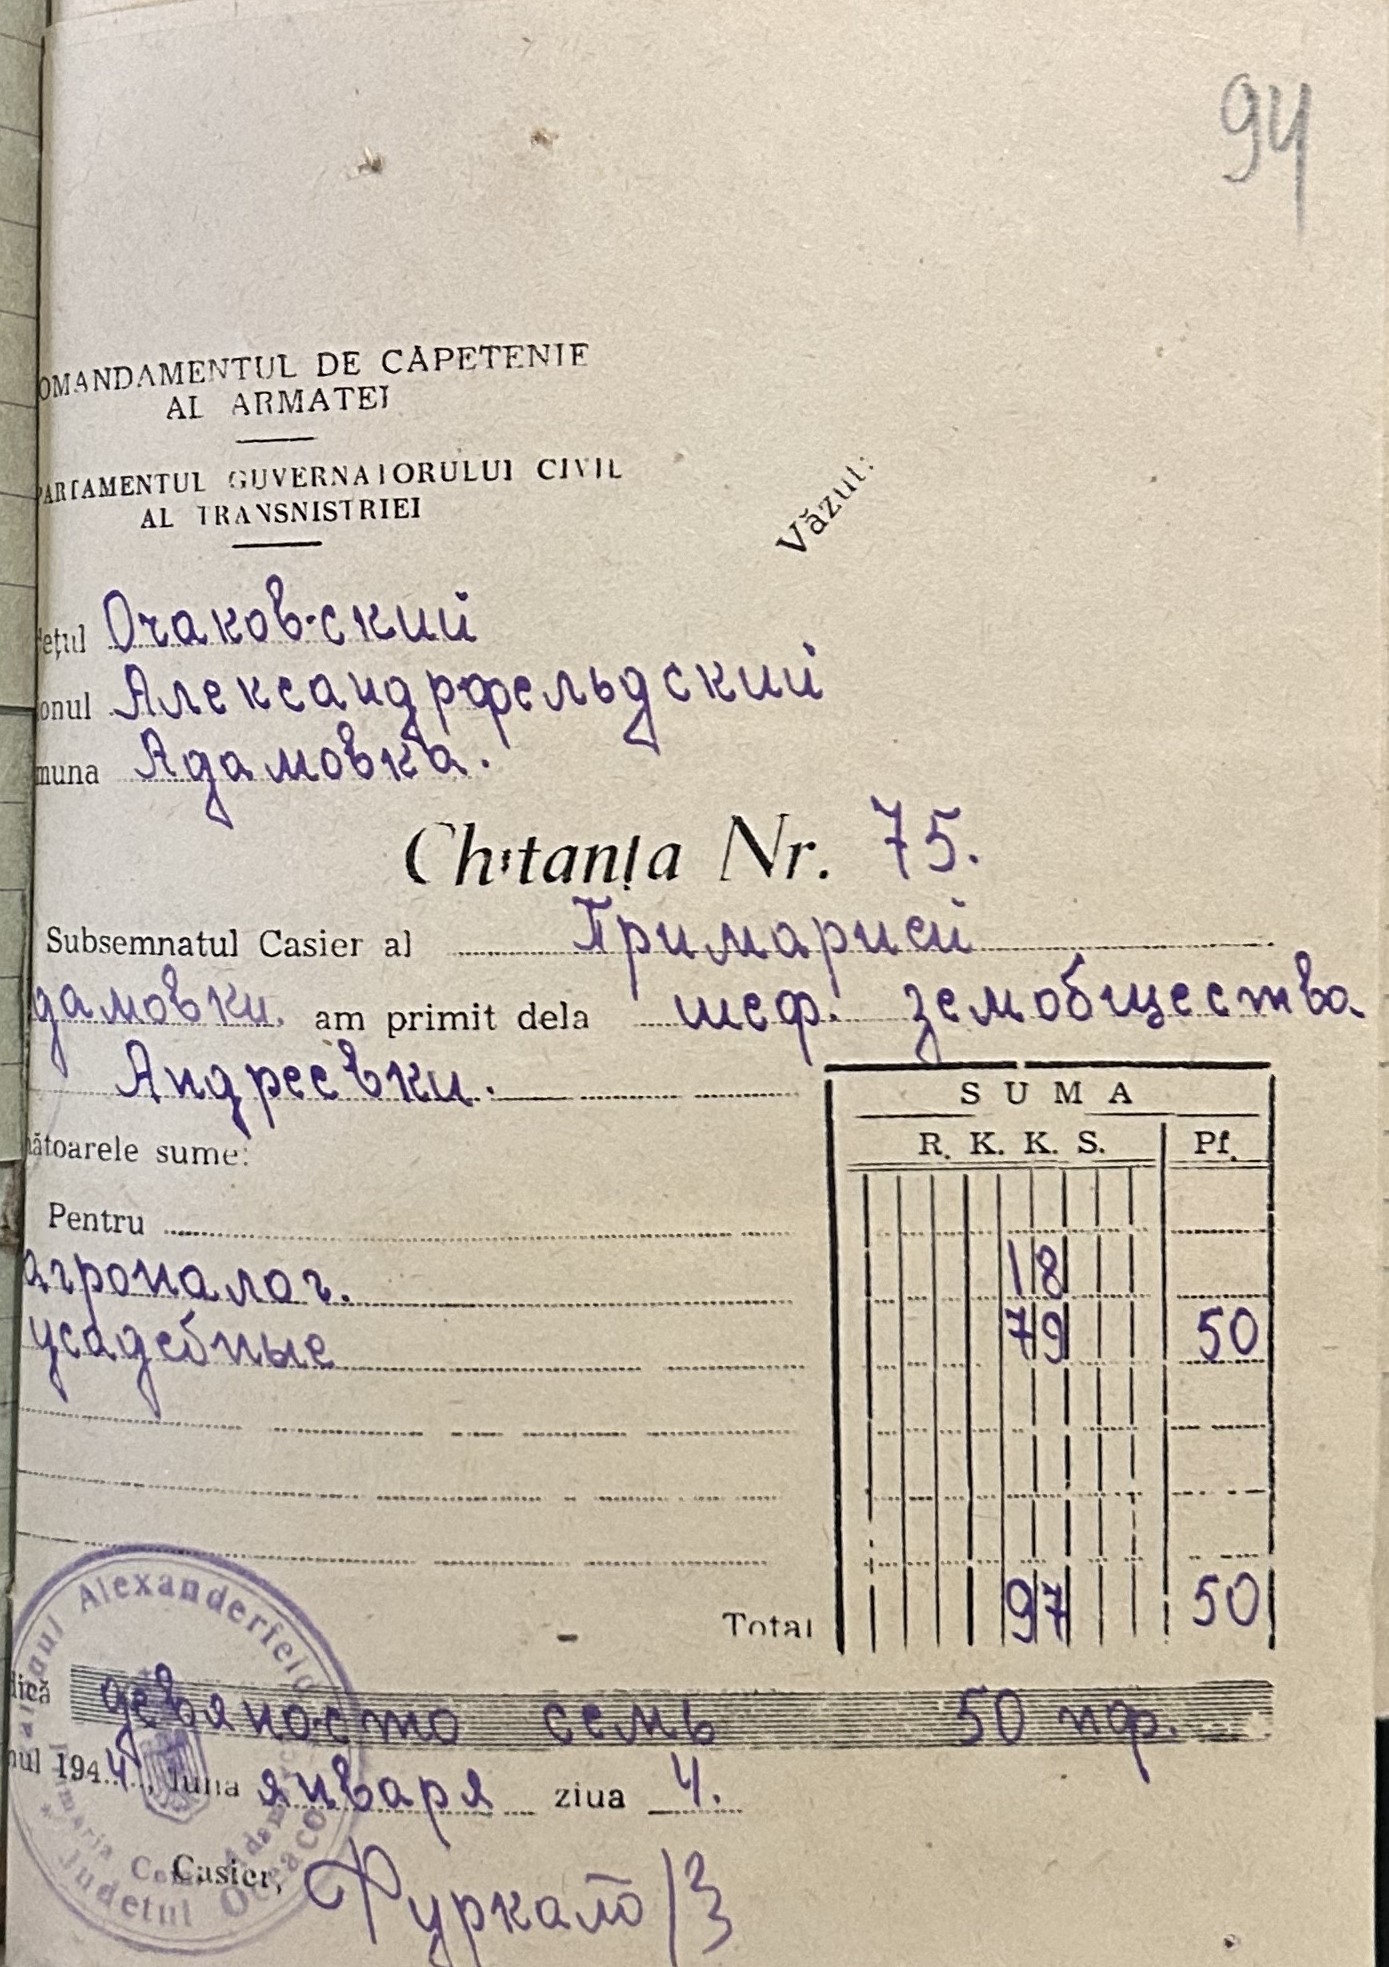 94
OMANDAMENTUL DE CĂPETENIE
AL ARMATEI
PARTAMENTUL GUVERNATORULUI CIVIL
AL TRANSNISTRIEI
Văzut:
ețul Очаковский
onul Александрфельдский
muna Адамовка.
Chitanța Nr. 75.
Subsemnatul Casier al Примарией
дамовки. am primit dela шеф. земобщества
Андреевки.
ătoarele sume:
SUMA
R. K. K. S. Pf.
Pentru
агроналог. 18
усадебные 79 50
Total 97 50
dică девяносто семь 50 пф.
nul 1944, luna января ziua 4.
Casier,
Raionul Alexanderfeld
Județul Oceacov
Primăria Com. Adamovca